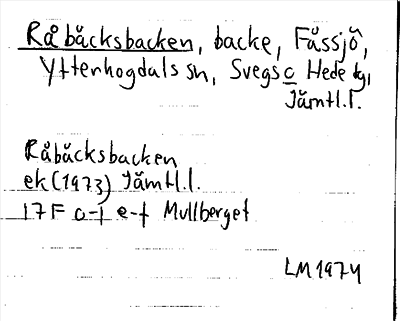 Råbäcksbacken, backe, Fåssjö,
Ytterhogdals sn, Svegs o Hede tg,
Jämtl.l.
Råbäcksbacken
ek (1973) Jämtl.l.
17F a-j e-f Mullberget
LM 1974